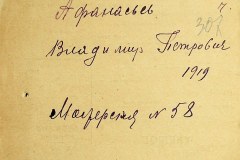 Афанасьев 7.
308
Владимир Петрович
1919
Мазерская № 58